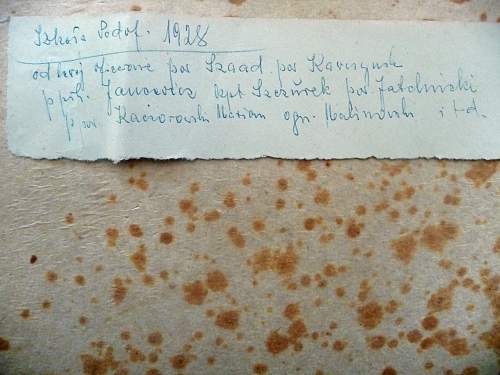 Szkoła Podof. 1928
od lewej oficerowie por Szaad por Karczyński
ppłk. Janowicz kpt Szczurek por Jatelnicki
por. Kaczorowski Marian ogn. Malinowski i t d.